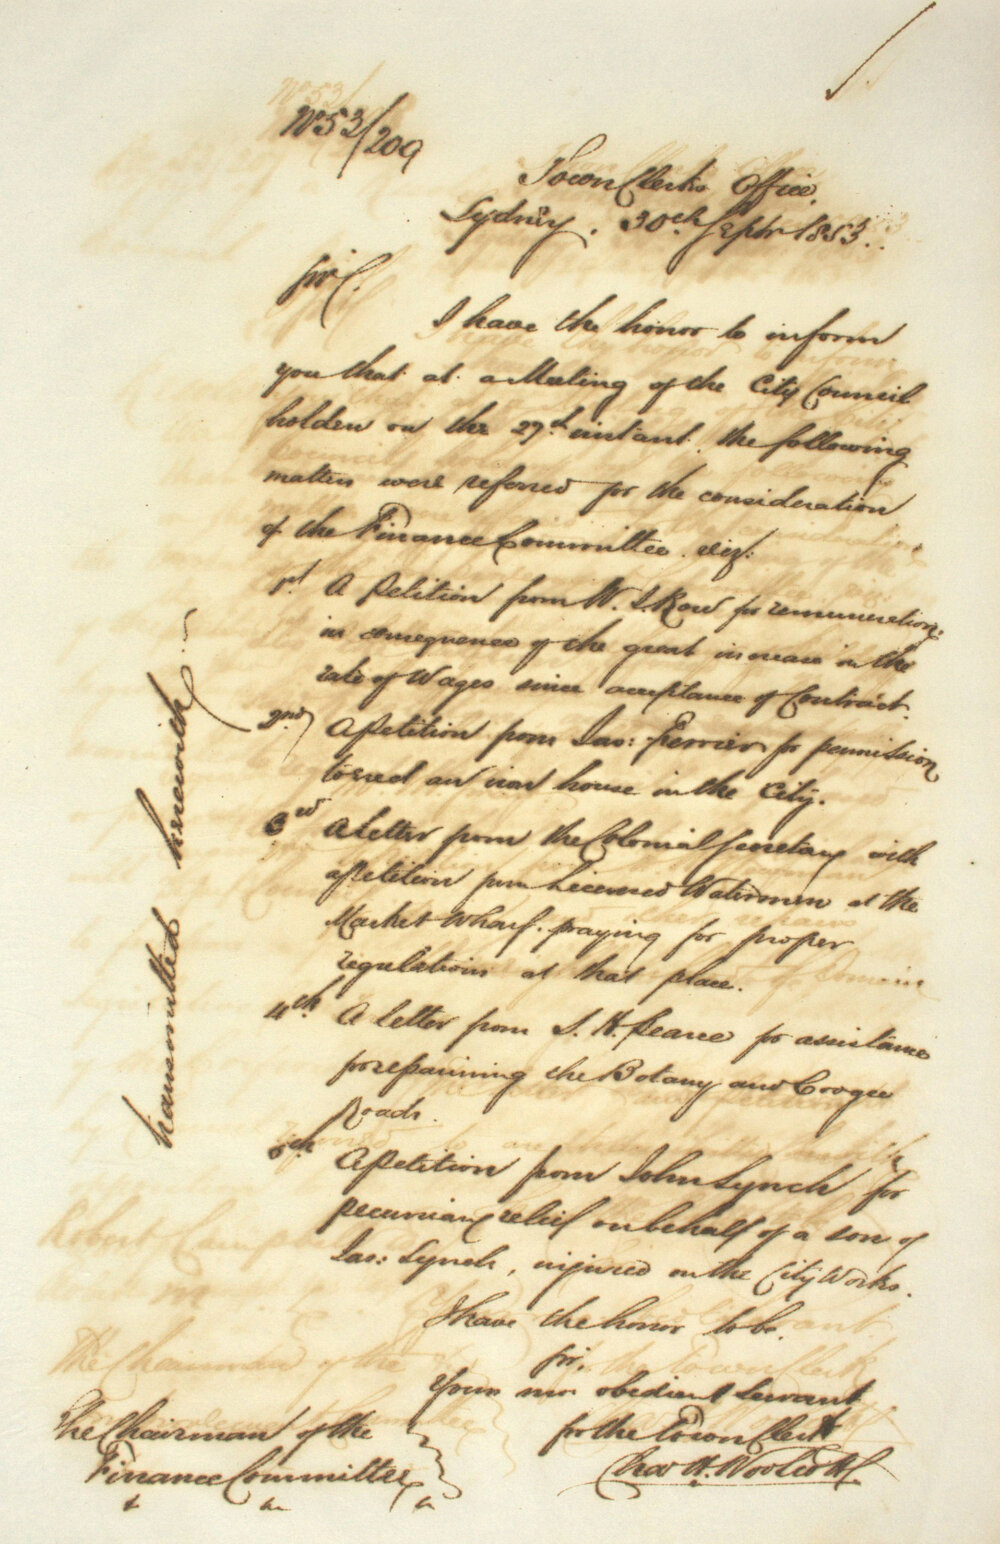 No 53/209
Town Clerks Office,
Sydney. 30th Septr 1853.
Sir,
I have the honor to inform
you that at a Meeting of the City Council
holden on the 27th instant the following
matters were referred for the consideration
of the Finance Committee. viz:
1st A Petition from W. Row for remuneration,
in consequence of the great increase in the
rate of Wages since acceptance of Contract.
2nd A Petition from Jas: Ferrier for permission
to erect an iron house in the City.
3rd A letter from the Colonial Secretary with
a petition from Licensed Watermen at the
Market Wharf. praying for proper
regulations at that place.
4th A letter from S. H. Pearce for assistance
for repairing the Botany and Coogee
Roads.
5th A Petition from John Lynch for
pecuniary relief on behalf of a son of
Jas: Lynch, injured on the City Works.
I have the honor to be,
Sir,
Your mo obedient Servant
for the Town Clerk
Chas H. Woolcott
The Chairman of the
Finance Committee
transmitted herewith